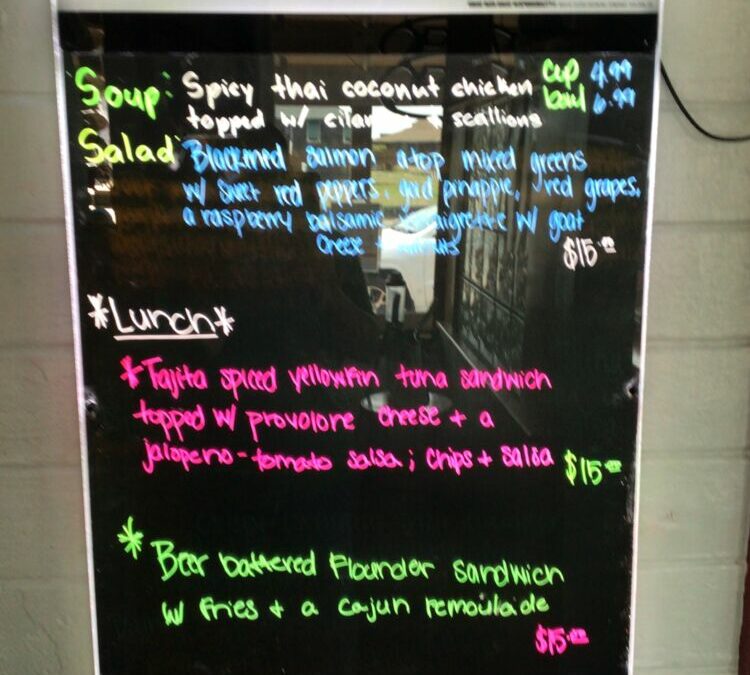 Soup: Spicy thai coconut chicken cup 4.99
topped w/ scallions bowl 6.99
Salad: Blackened salmon atop mixed greens
w/ sweet red peppers, gold pinapple, red grapes,
a raspberry balsamic w/ goat
cheese +
$15.00
*Lunch*
*Fajita spiced yellowfin tuna sandwich
topped w/ provolone cheese + a
jalapeno-tomato salsa; chips + salsa $15.00
* Beer battered Flounder sandwich
w/ fries + a cajun remoulade
$15.00